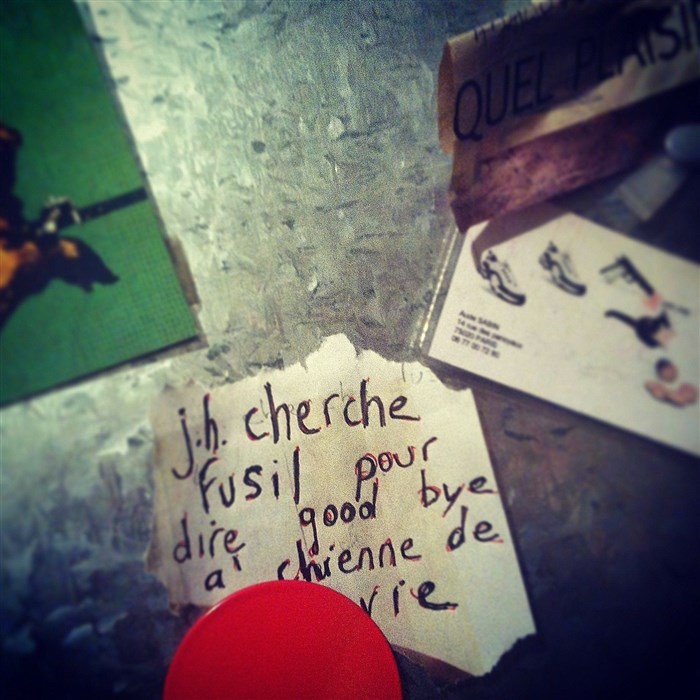 QUEL PLAISI
j.h. cherche
fusil pour
dire good bye
a' chienne de
vie